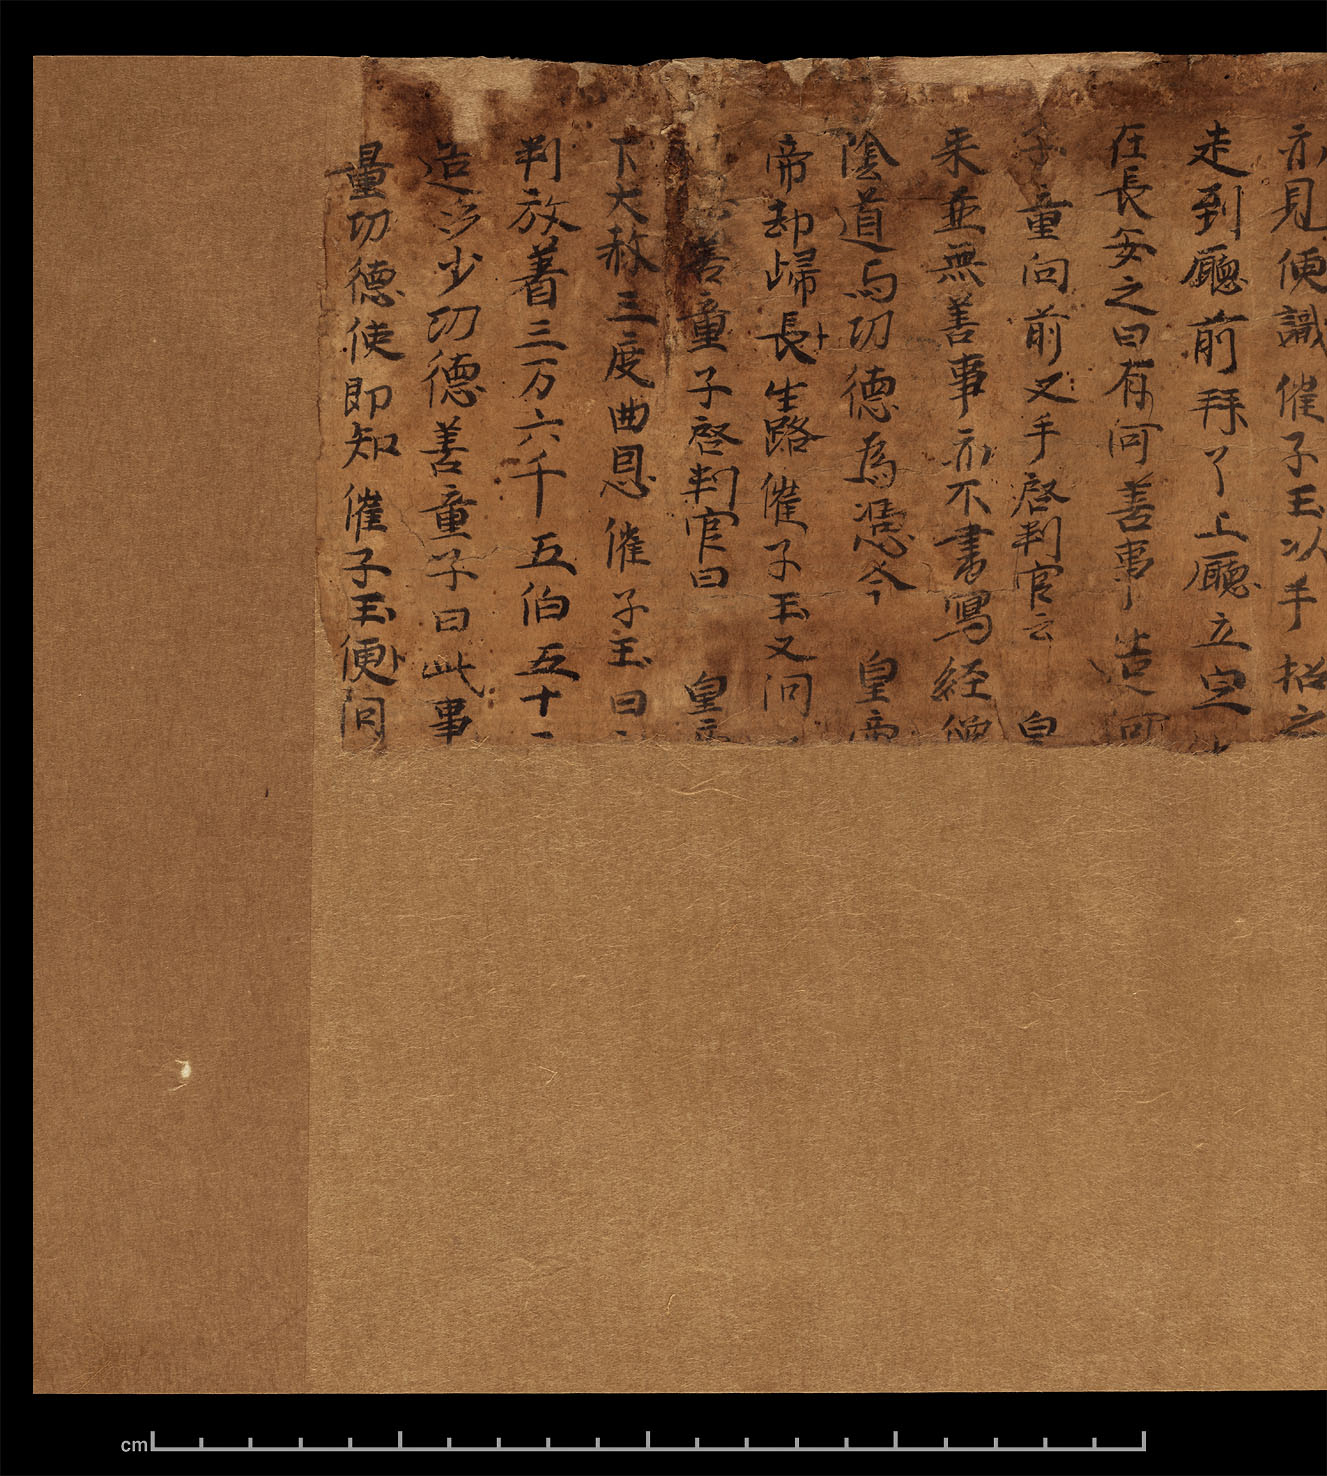 亦見便識催子玉以手招之
走到廳前拜了上廳立定
在長安之日有何善事造何
子童向前叉手啓判官云 皇
来並無善事亦不書寫経僧
陰道与功德為憑今 皇帝
帝却歸長生路催子玉又問
善童子啓判官曰 皇帝
下大赦三度曲恩催子玉曰
判放着三万六千五伯五十
造多少功德善童子曰此事
量功德使即知催子玉便問
cm